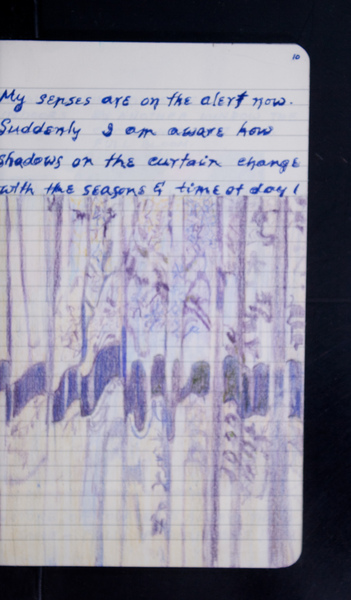 10
My senses are on the alert now.
Suddenly I am aware how
shadows on the curtain change
with the seasons & time of day!